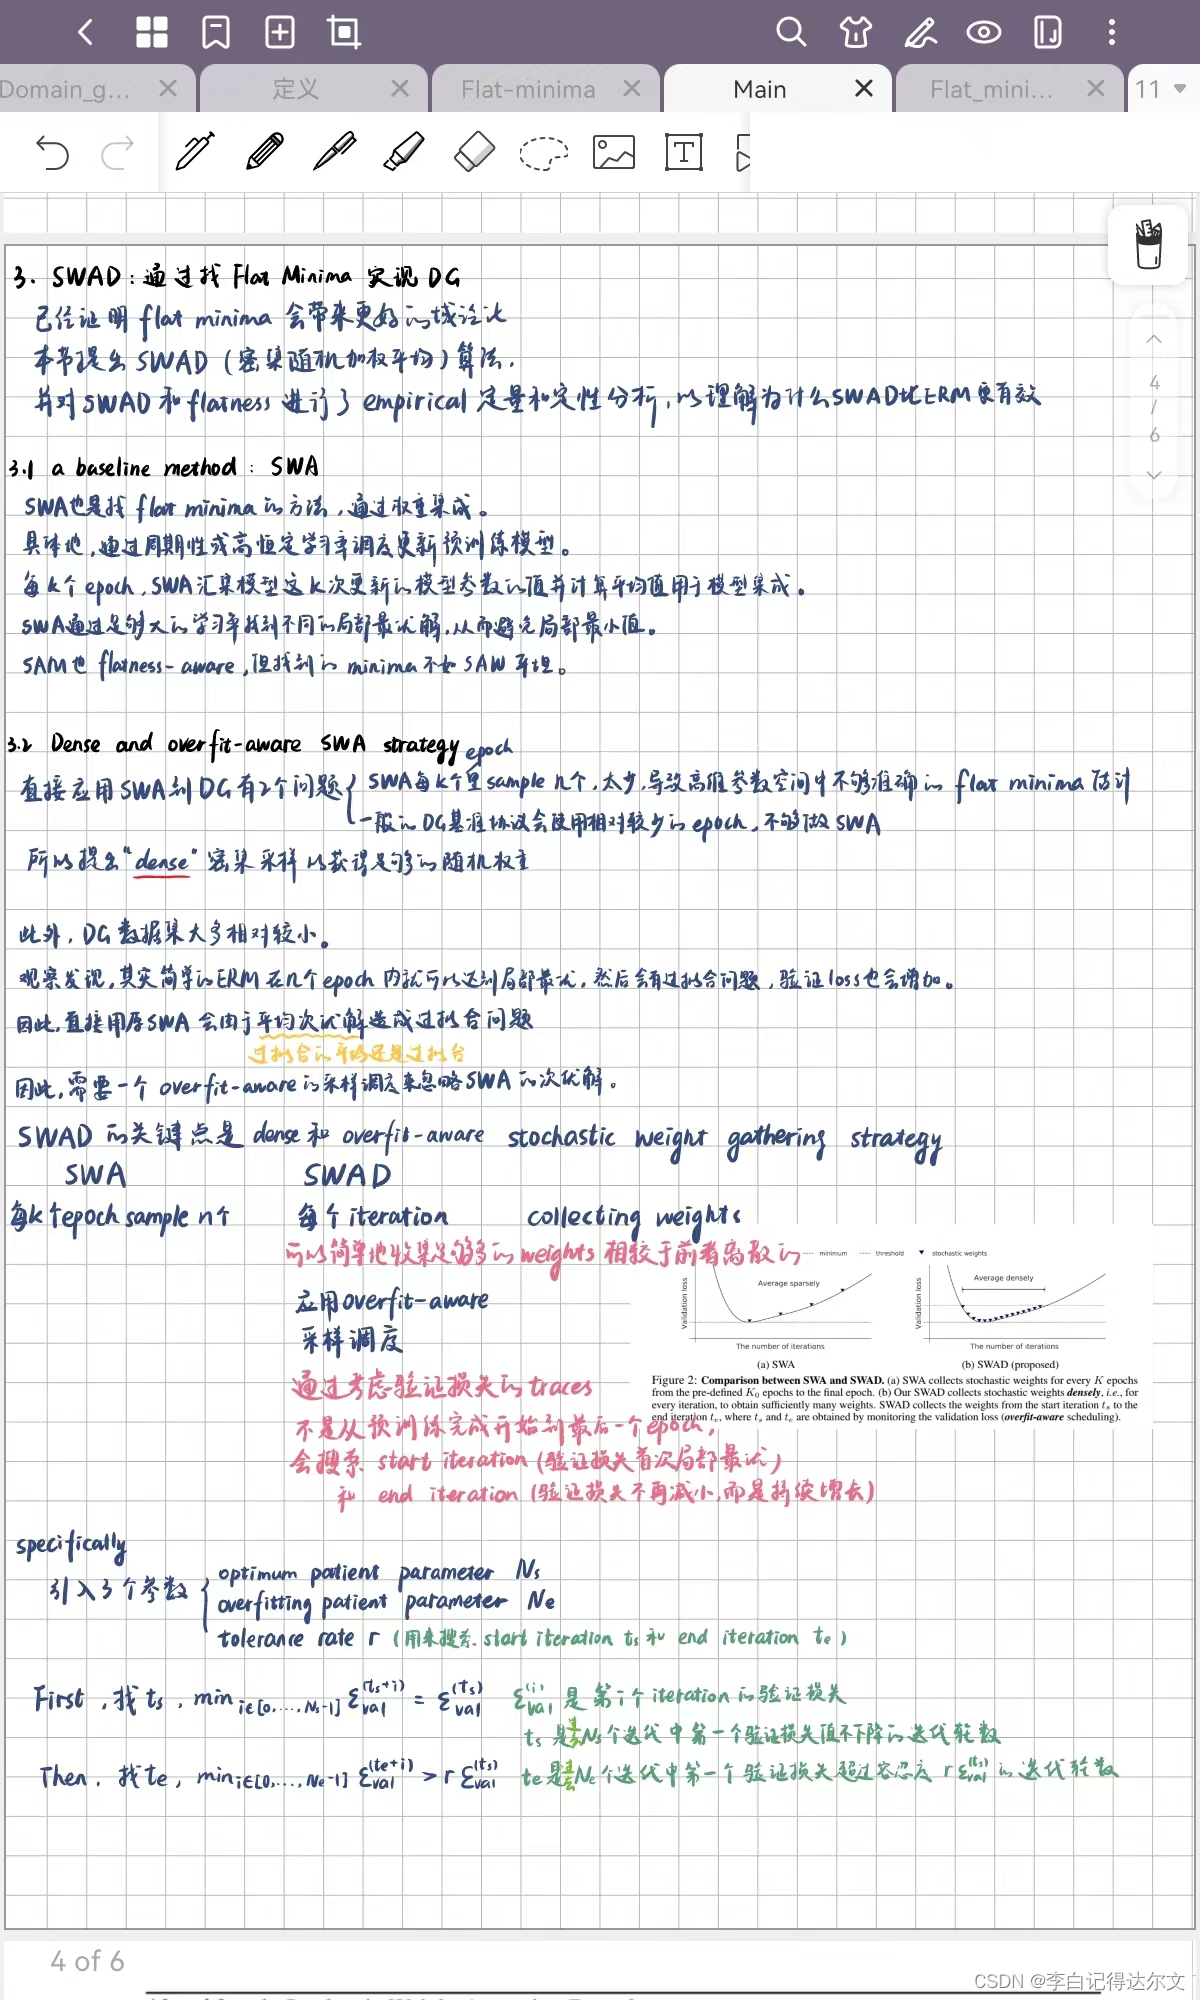 Domain_g...
定义
Flat-minima
Main
Flat_mini...
11
3. SWAD：通过找 Flat Minima 实现 DG
已经证明 flat minima 会带来更好的域泛化
本节提出 SWAD（密集随机加权平均）算法.
并对 SWAD 和 flatness 进行了 empirical 定量和定性分析, 以理解为什么SWAD比ERM更有效
4
/
6
3.1 a baseline method : SWA
SWA也是找 flat minima 的方法, 通过权重集成。
具体地, 通过周期性或高恒定学习率调度更新预训练模型。
每 k个 epoch, SWA汇集模型这 K次更新的模型参数的值并计算平均值用于模型集成。
SWA通过足够大的学习率找到不同的局部最优解, 从而避免局部最小值。
SAM也 flatness-aware, 但找到的 minima 不如 SAW 平坦。
3.2 Dense and overfit-aware SWA strategy
epoch
直接应用SWA到DG有2个问题
SWA每k个里sample n个, 太少, 导致高维参数空间中不够准确的 flat minima 估计
一般的DG基准协议会使用相对较少的 epoch, 不够做 SWA
所以提出"dense" 密集采样以获得足够的随机权重
此外, DG数据集大多相对较小。
观察发现, 其实简单的ERM在几个epoch 内就可以达到局部最优, 然后会有过拟合问题, 验证loss也会增加。
因此, 直接用原SWA会由于平均次优解造成过拟合问题
过拟合的平均还是过拟合
因此, 需要一个 overfit-aware的采样调度来忽略SWA的次优解。
SWAD 的关键点是 dense 和 overfit-aware stochastic weight gathering strategy
SWA SWAD
每k个epoch sample n个 每个iteration collecting weights
所以简单地收集足够多的weights 相较于前者离散的
minimum threshold stochastic weights
Average sparsely
Average densely
Validation loss
Validation loss
The number of iterations
The number of iterations
(a) SWA
(b) SWAD (proposed)
Figure 2: Comparison between SWA and SWAD. (a) SWA collects stochastic weights for every K epochs
from the pre-defined K₀ epochs to the final epoch. (b) Our SWAD collects stochastic weights densely, i.e., for
every iteration, to obtain sufficiently many weights. SWAD collects the weights from the start iteration tₛ to the
end iteration tₑ, where tₛ and tₑ are obtained by monitoring the validation loss (overfit-aware scheduling).
应用overfit-aware
采样调度
通过考虑验证损失的traces
不是从预训练完成开始到最后一个epoch,
会搜索 start iteration (验证损失首次局部最优)
和 end iteration (验证损失不再减小,而是持续增长)
specifically
引入3个参数
optimum patient parameter Ns
overfitting patient parameter Ne
tolerance rate r (用来搜索 start iteration ts 和 end iteration te)
First, 找ts, min i∈[0,...,Ns-1] ℰval^(ts+i) = ℰval^(ts) ℰval^(i) 是第i个iteration的验证损失
ts是Ns个迭代中第一个验证损失值不下降的迭代轮数
Then, 找te, min i∈[0,...,Ne-1] ℰval^(te+i) > r ℰval^(ts) te是Ne个迭代中第一个验证损失超过容忍度 rℰval^(ts) 的迭代轮数
4 of 6
CSDN @李白记得达尔文